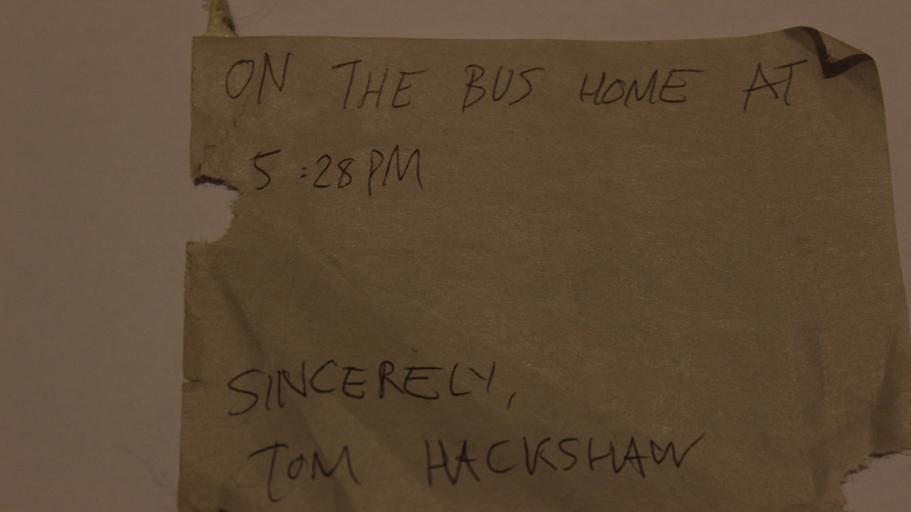 ON THE BUS HOME AT
5:28PM
SINCERELY,
TOM HACKSHAW